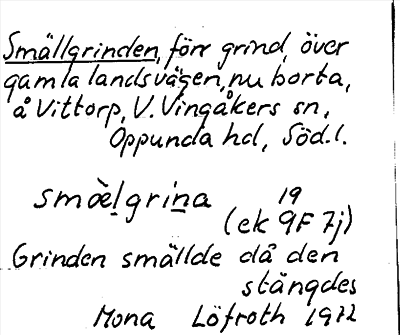 Smällgrinden, förr grind, över
gamla landsvägen, nu borta,
å Vittorp, V. Vingåkers sn,
Oppunda hd, Söd.l.
smæ̀l̠grin̠a 19
(ek 9F 7j)
Grinden smällde då den
stängdes
Mona Löfroth 1972